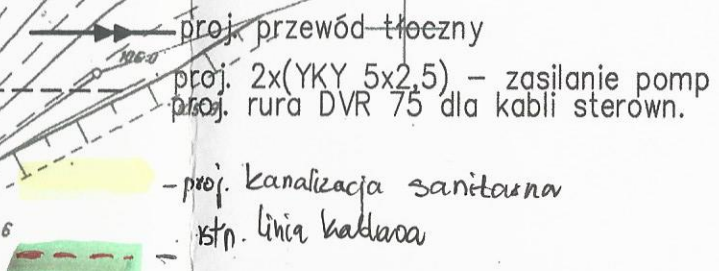 proj. przewód tłoczny
proj. 2x(YKY 5x2,5) – zasilanie pomp
proj. rura DVR 75 dla kabli sterown.
- proj. kanalizacja sanitarna
- istn. linia kablowa
6